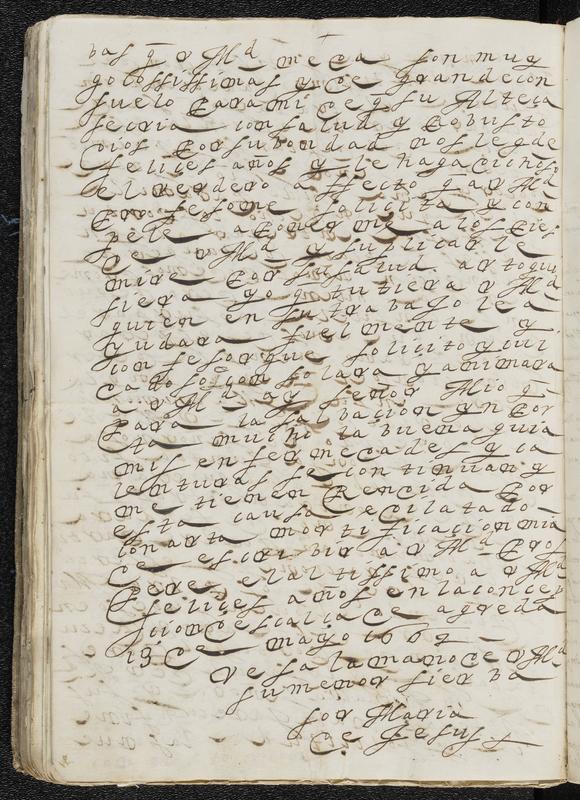 bas q̄ v Md me da son muy
gosossissimas y de grande con
suelo para mi de q su Alteça
se cria con salud y Robusto
dios por su bondad nos le g de
felices años y le haga dichoso
el verdero affecto q̄ a v Md
profeso me solicita y con
pele a poner me a los pies
de v Md y suplicar le
mire por su salud arto qui
siera yo q̄ tu tiera v Md
quien en su trabajo le a
yudara fiel mente y
con fesor que solicito y cui
dadoso con solara y animara
a v Md ay señor Mio q̄
para la salbacion yn por
ta mucho la buena guia
mis en fer medades y ca
lenturas se con tinuan y
me tienen Rendida por
esta causa e dilatado
con arta mortificacion mia
de escrivir a v Md Pros
pere el altissimo a v Md
felices años en la concep
cion descalça de agreda
19 de mayo 1662
Ve sa la mano de v Md
su menor sierba
sor Maria
de Jesus